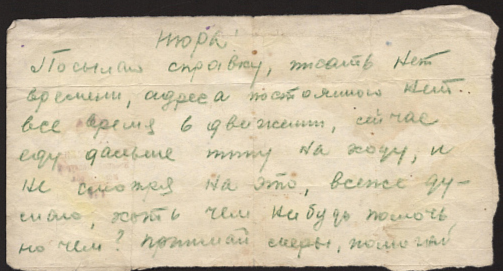 Нюра!
Посылаю справку, писать нет
времени, адреса постоянного нет..
все время в движении, сейчас
еду дальше пишу на ходу, и
не смотря на это, всеже ду-
маю, хоть чем нибудь помочь
но чем? принимай меры, помогай